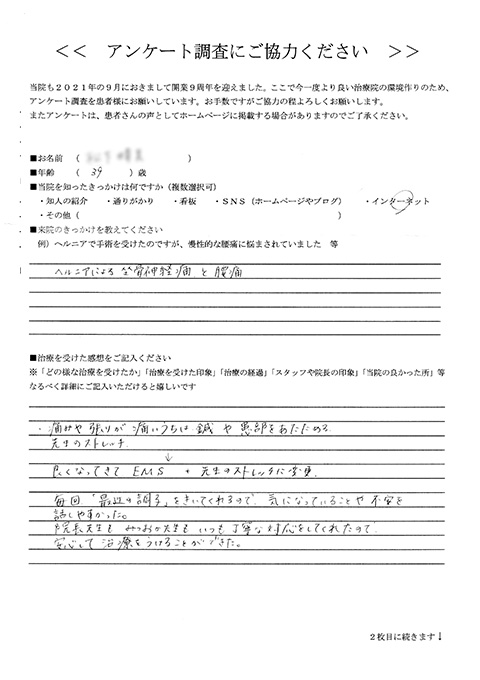 << アンケート調査にご協力ください >>
当院も2021年の9月におきまして開業9周年を迎えました。ここで今一度より良い治療院の環境作りのため、
アンケート調査を患者様にお願いしています。お手数ですがご協力の程よろしくお願いします。
またアンケートは、患者さんの声としてホームページに掲載する場合がありますのでご了承ください。
■お名前 ( )
■年齢 ( 39 )歳
■当院を知ったきっかけは何ですか(複数選択可)
・知人の紹介 ・通りがかり ・看板 ・SNS(ホームページやブログ) ・インターネット
・その他( )
■来院のきっかけを教えてください
例)ヘルニアで手術を受けたのですが、慢性的な腰痛に悩まされていました 等
ヘルニアによる坐骨神経痛と腰痛
■治療を受けた感想をご記入ください
※「どの様な治療を受けたか」「治療を受けた印象」「治療の経過」「スタッフや院長の印象」「当院の良かった所」等
なるべく詳細にご記入いただけると嬉しいです
・痛みや張りが痛いうちは鍼や患部をあたためる
先生のストレッチ
↓
良くなってきてEMS + 先生のストレッチに変更
毎回「最近の調子」をきいてくれるので、気になっていることや不安を
話しやすかった。
院長先生も みつおか先生も いつも丁寧な対応をしてくれたので
安心して治療をうけることができた。
2枚目に続きます↓